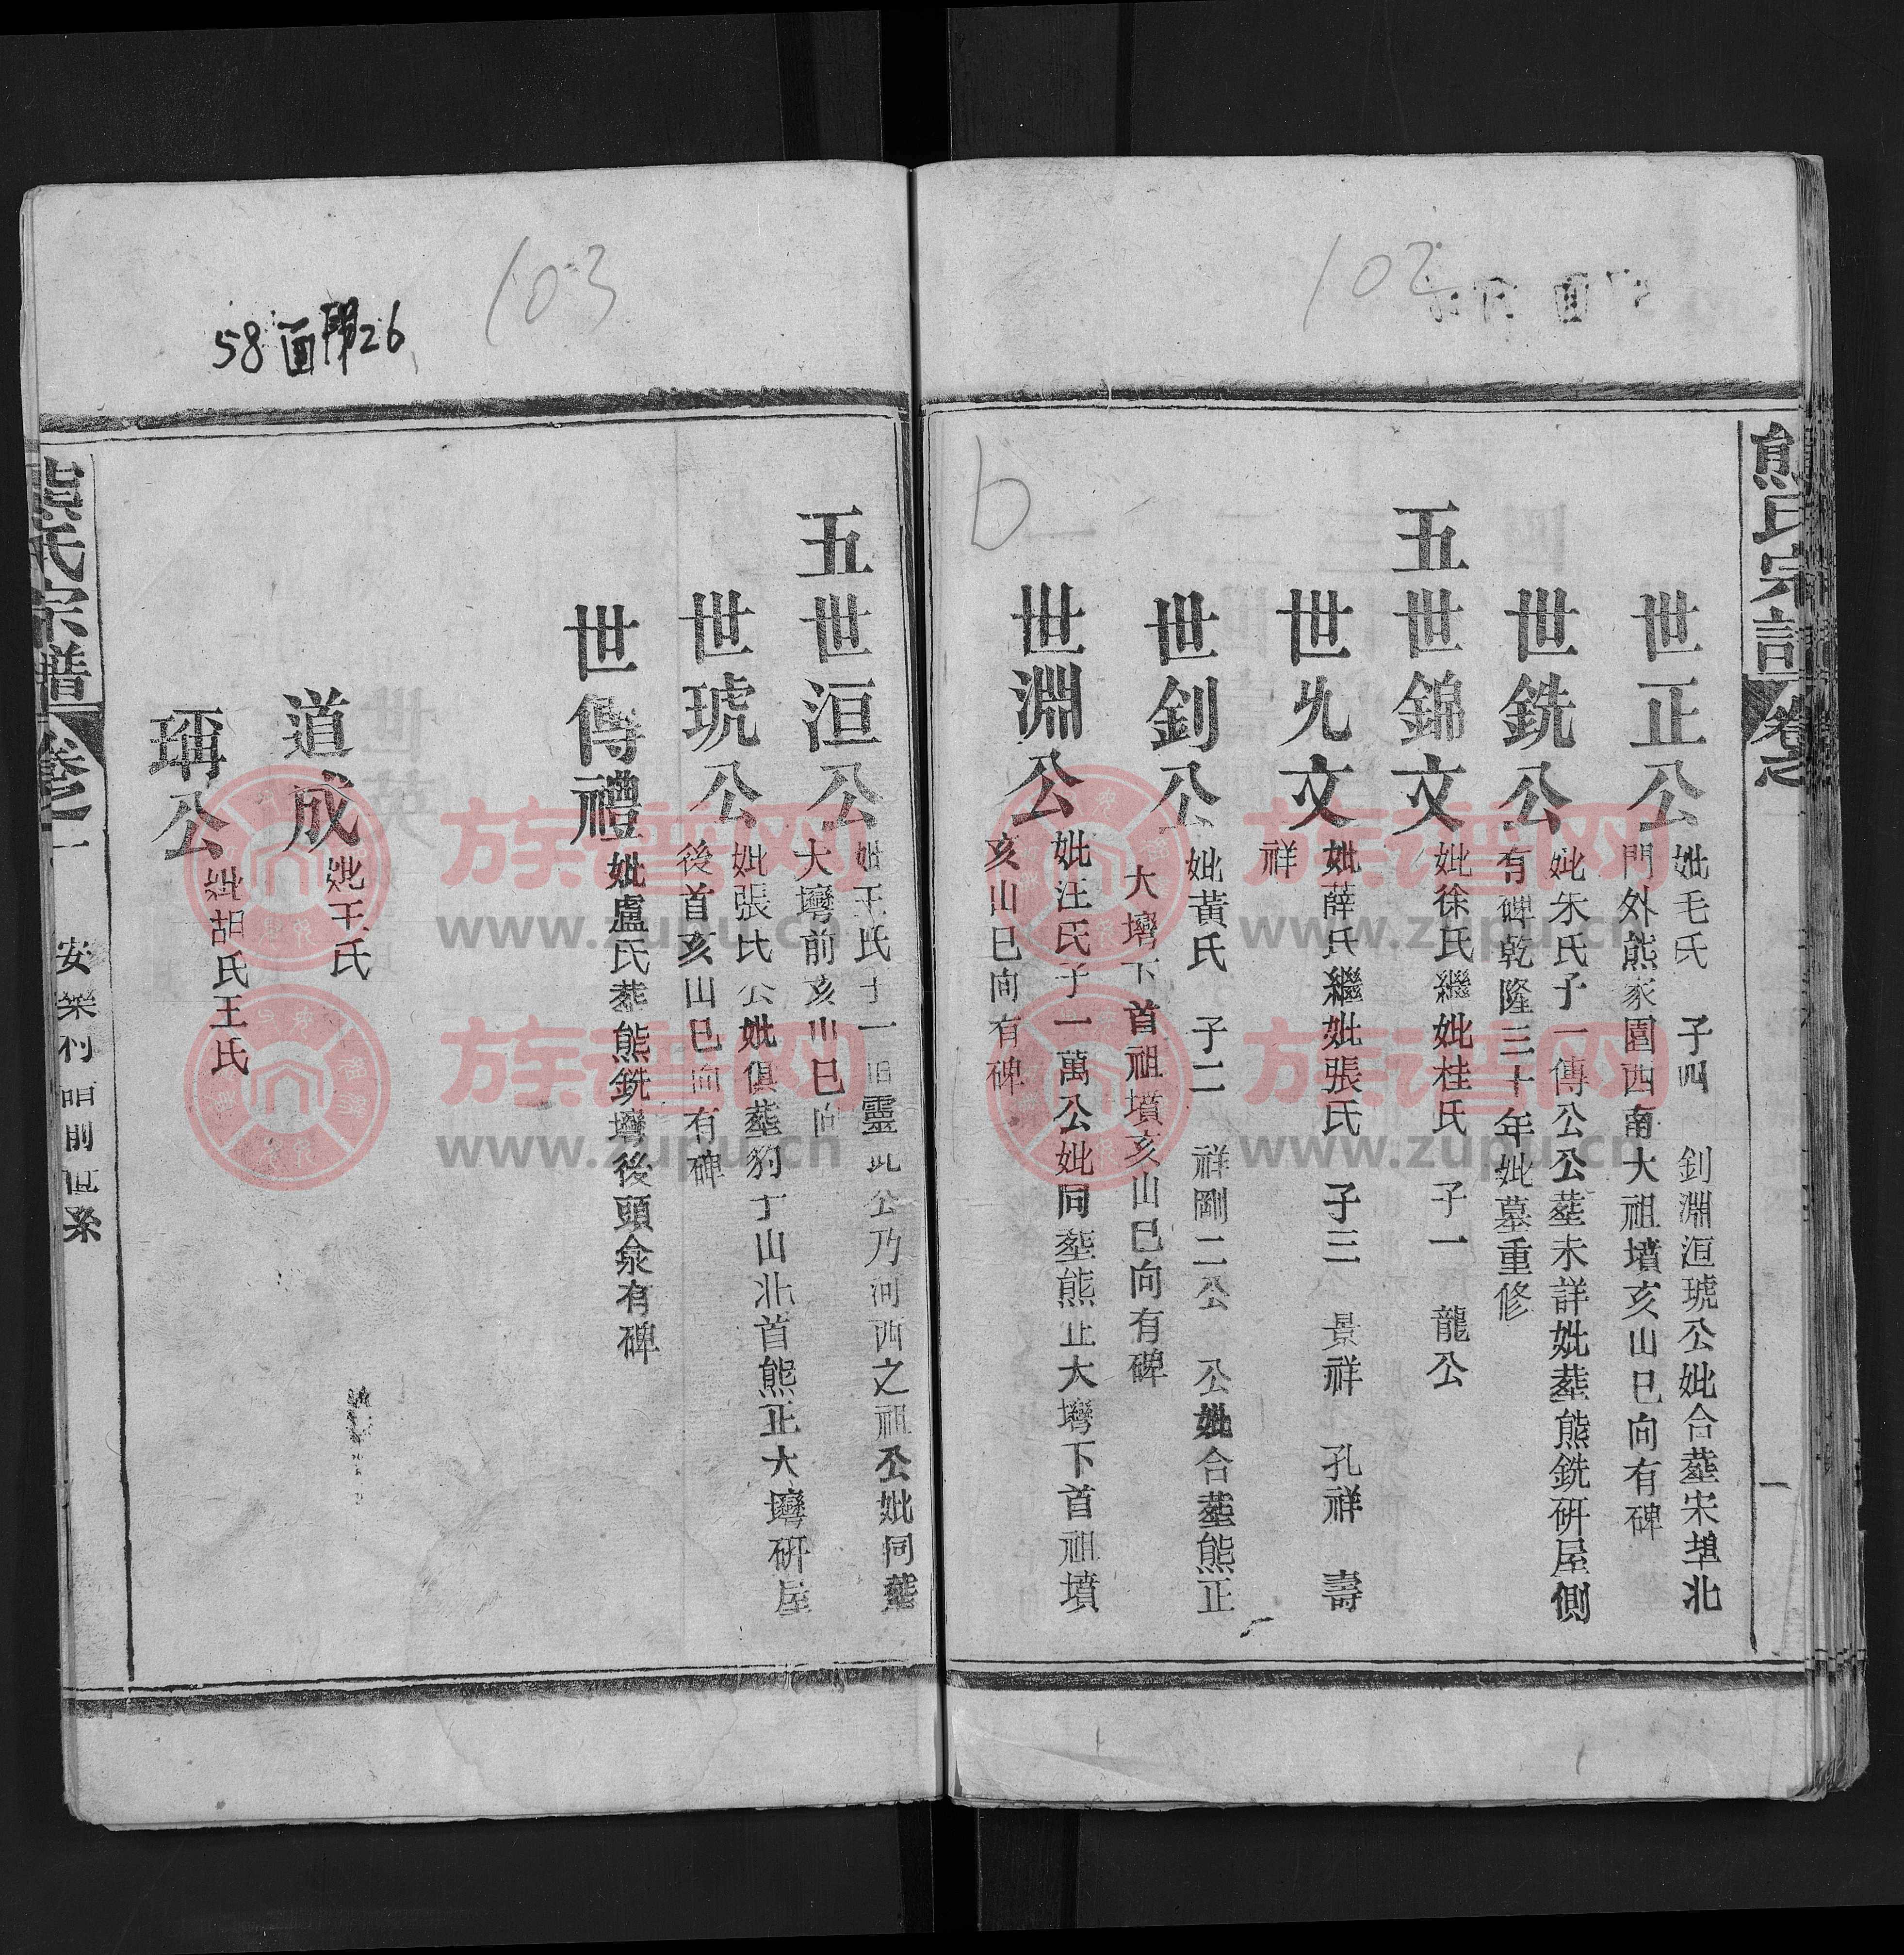 102
熊氏宗譜
卷之
一
世正公
妣毛氏 子四 釗淵洹琥公妣合塟宋埠北
門外熊家園西南大祖墳亥山巳向有碑
世銑公
妣朱氏子一傳公公塟未詳妣塟熊銑硏屋側
有碑乾隆三十年妣墓重修
五世錦文
妣徐氏繼妣桂氏 子一 龍公
世允文
妣薛氏繼妣張氏 子三 景祥 孔祥 壽
祥
世釗公
妣黃氏 子二 祥剛二公 公妣合塟熊正
大塆下首祖墳亥山巳向有碑
世淵公
妣汪氏子一萬公妣同塟熊正大塆下首祖墳
亥山巳向有碑
b
103
58面開26
五世洹公
妣王氏子一 靈此公乃河西之祖公妣同塟
大塆前亥山巳向
世琥公
妣張氏公妣俱塟豹丁山北首熊正大塆硏屋
後首亥山巳向有碑
世傳禮
妣盧氏塟熊銑塆後頭氽有碑
道成
妣王氏
稱公
妣胡氏王氏
熊氏宗譜
卷之一
安樂利 明前世系